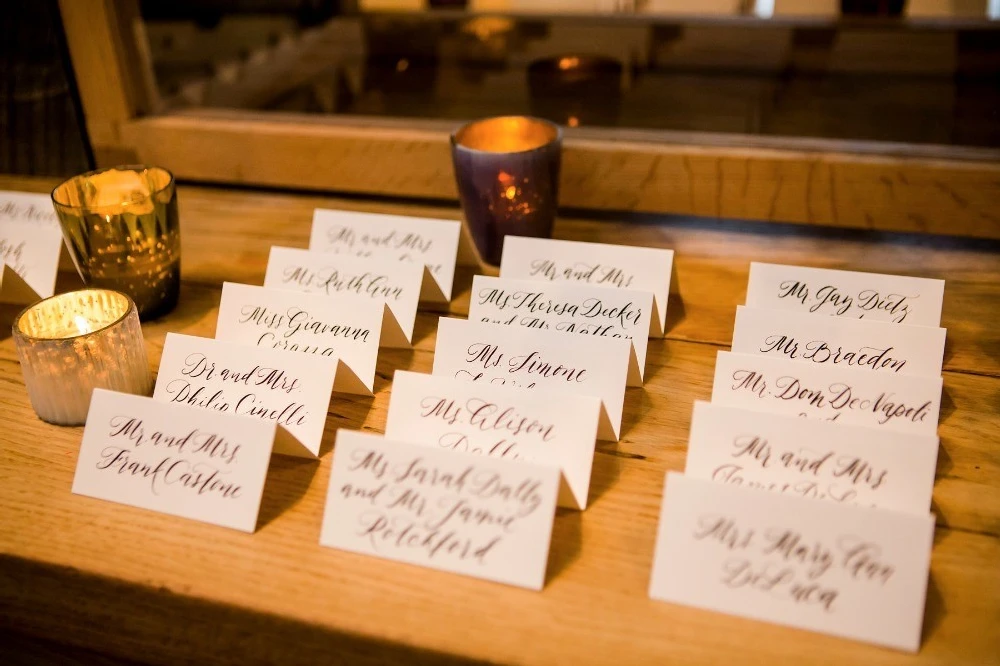 Mr and Mrs
Ms Ruth Ann
Miss Giavanna
Corassa
Dr and Mrs.
Philip Cinelli
Mr and Mrs.
Frank Castone
Mr and Mrs
Ms Theresa Decker
and Mr Nathan
Ms Simone
Ms Alison
Dally
Ms Sarah Dally
and Mr Jamie
Rotchford
Mr Jay Dietz
Mr Braedon
Mr. Dom DeNapoli
Mr and Mrs
Mrs Mary Ann
DeLuca